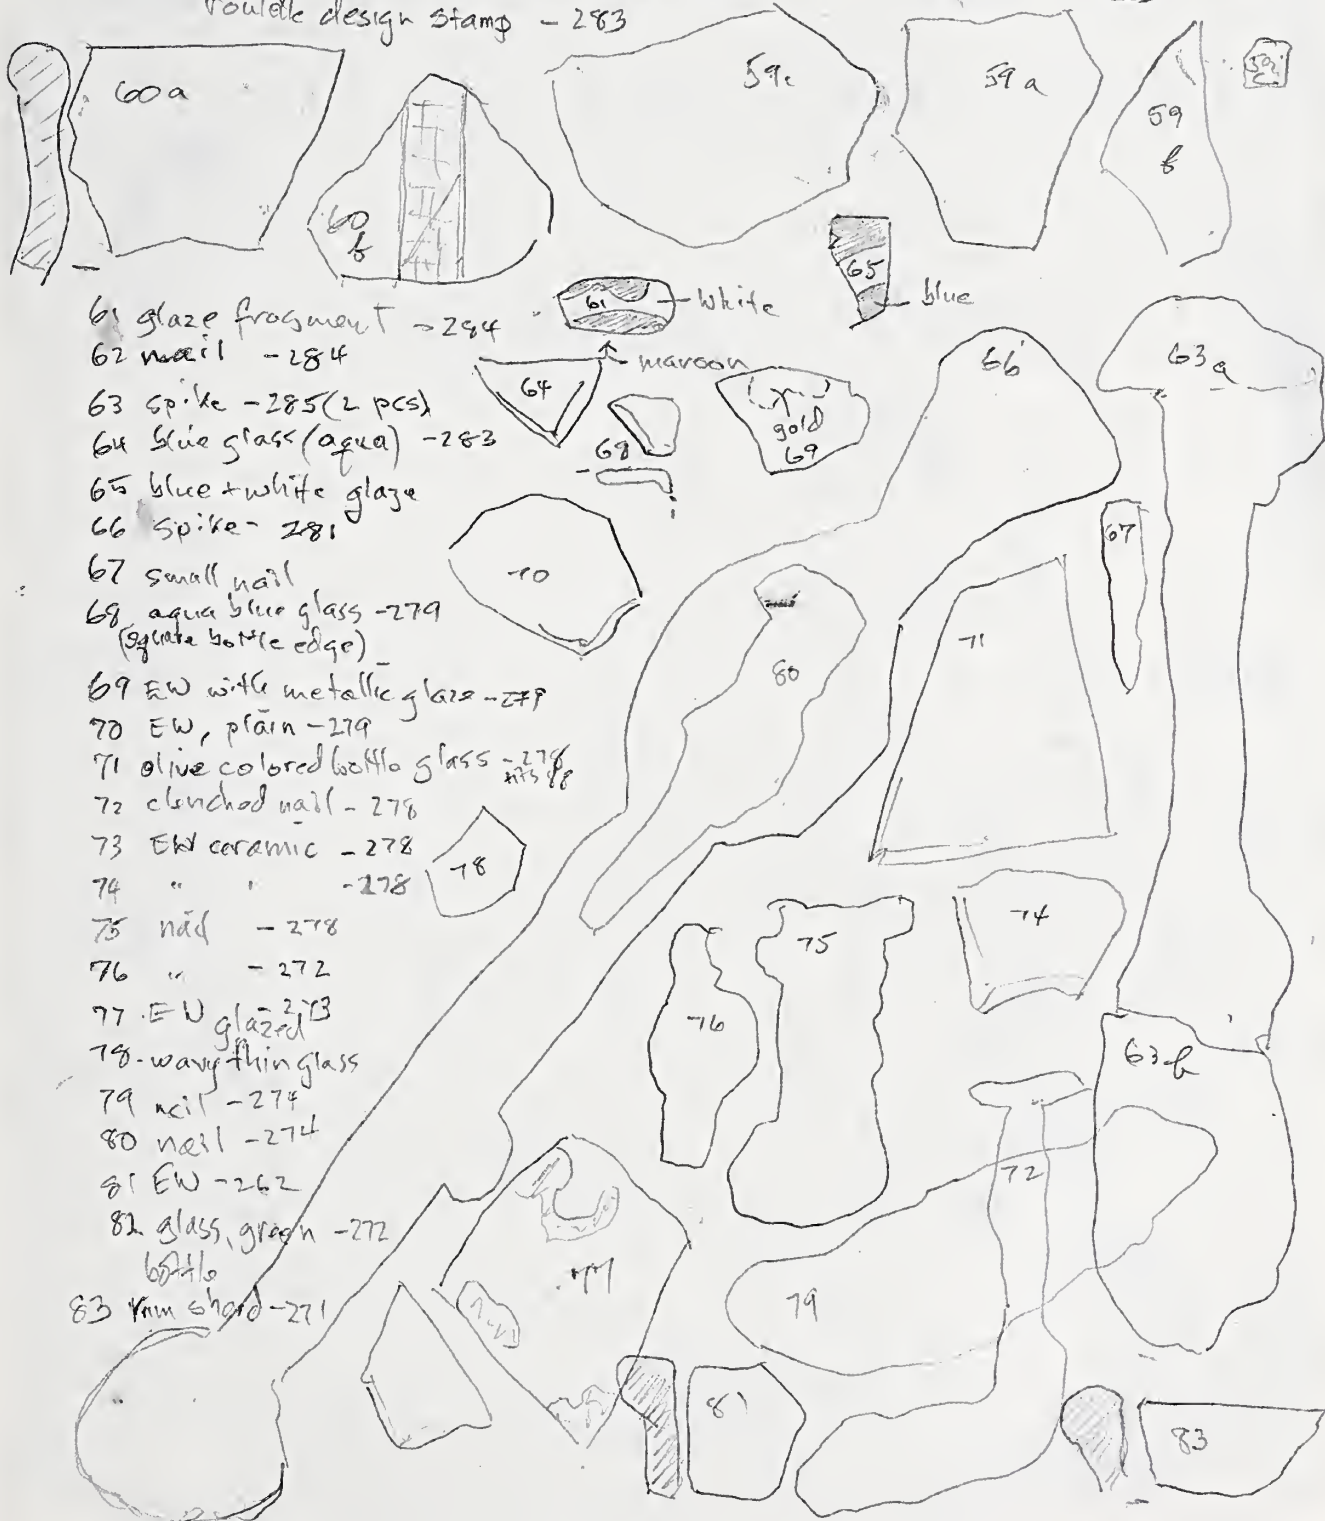 roulette design stamp - 283
60a
60
b
59c
59a
59
b
61 glaze fragment - 284
62 nail - 284
63 spike - 285 (2 pcs)
64 blue glass (aqua) - 283
65 blue + white glaze
66 spike - 281
67 small nail
68 aqua blue glass - 279
(square bottle edge)
69 EW with metallic glaze - 279
70 EW, plain - 279
71 olive colored bottle glass - 278
72 clenched nail - 278
73 EW ceramic - 278
74 " " - 278
75 nail - 278
76 " - 272
77 EW glazed - 273
78 wavy thin glass
79 nail - 274
80 nail - 274
81 EW - 262
82 glass, green - 272
bottle
83 rim sherd - 271
61
white
maroon
65
blue
64
68
gold
69
66
63a
67
70
80
71
78
74
75
76
63b
72
77
79
81
83